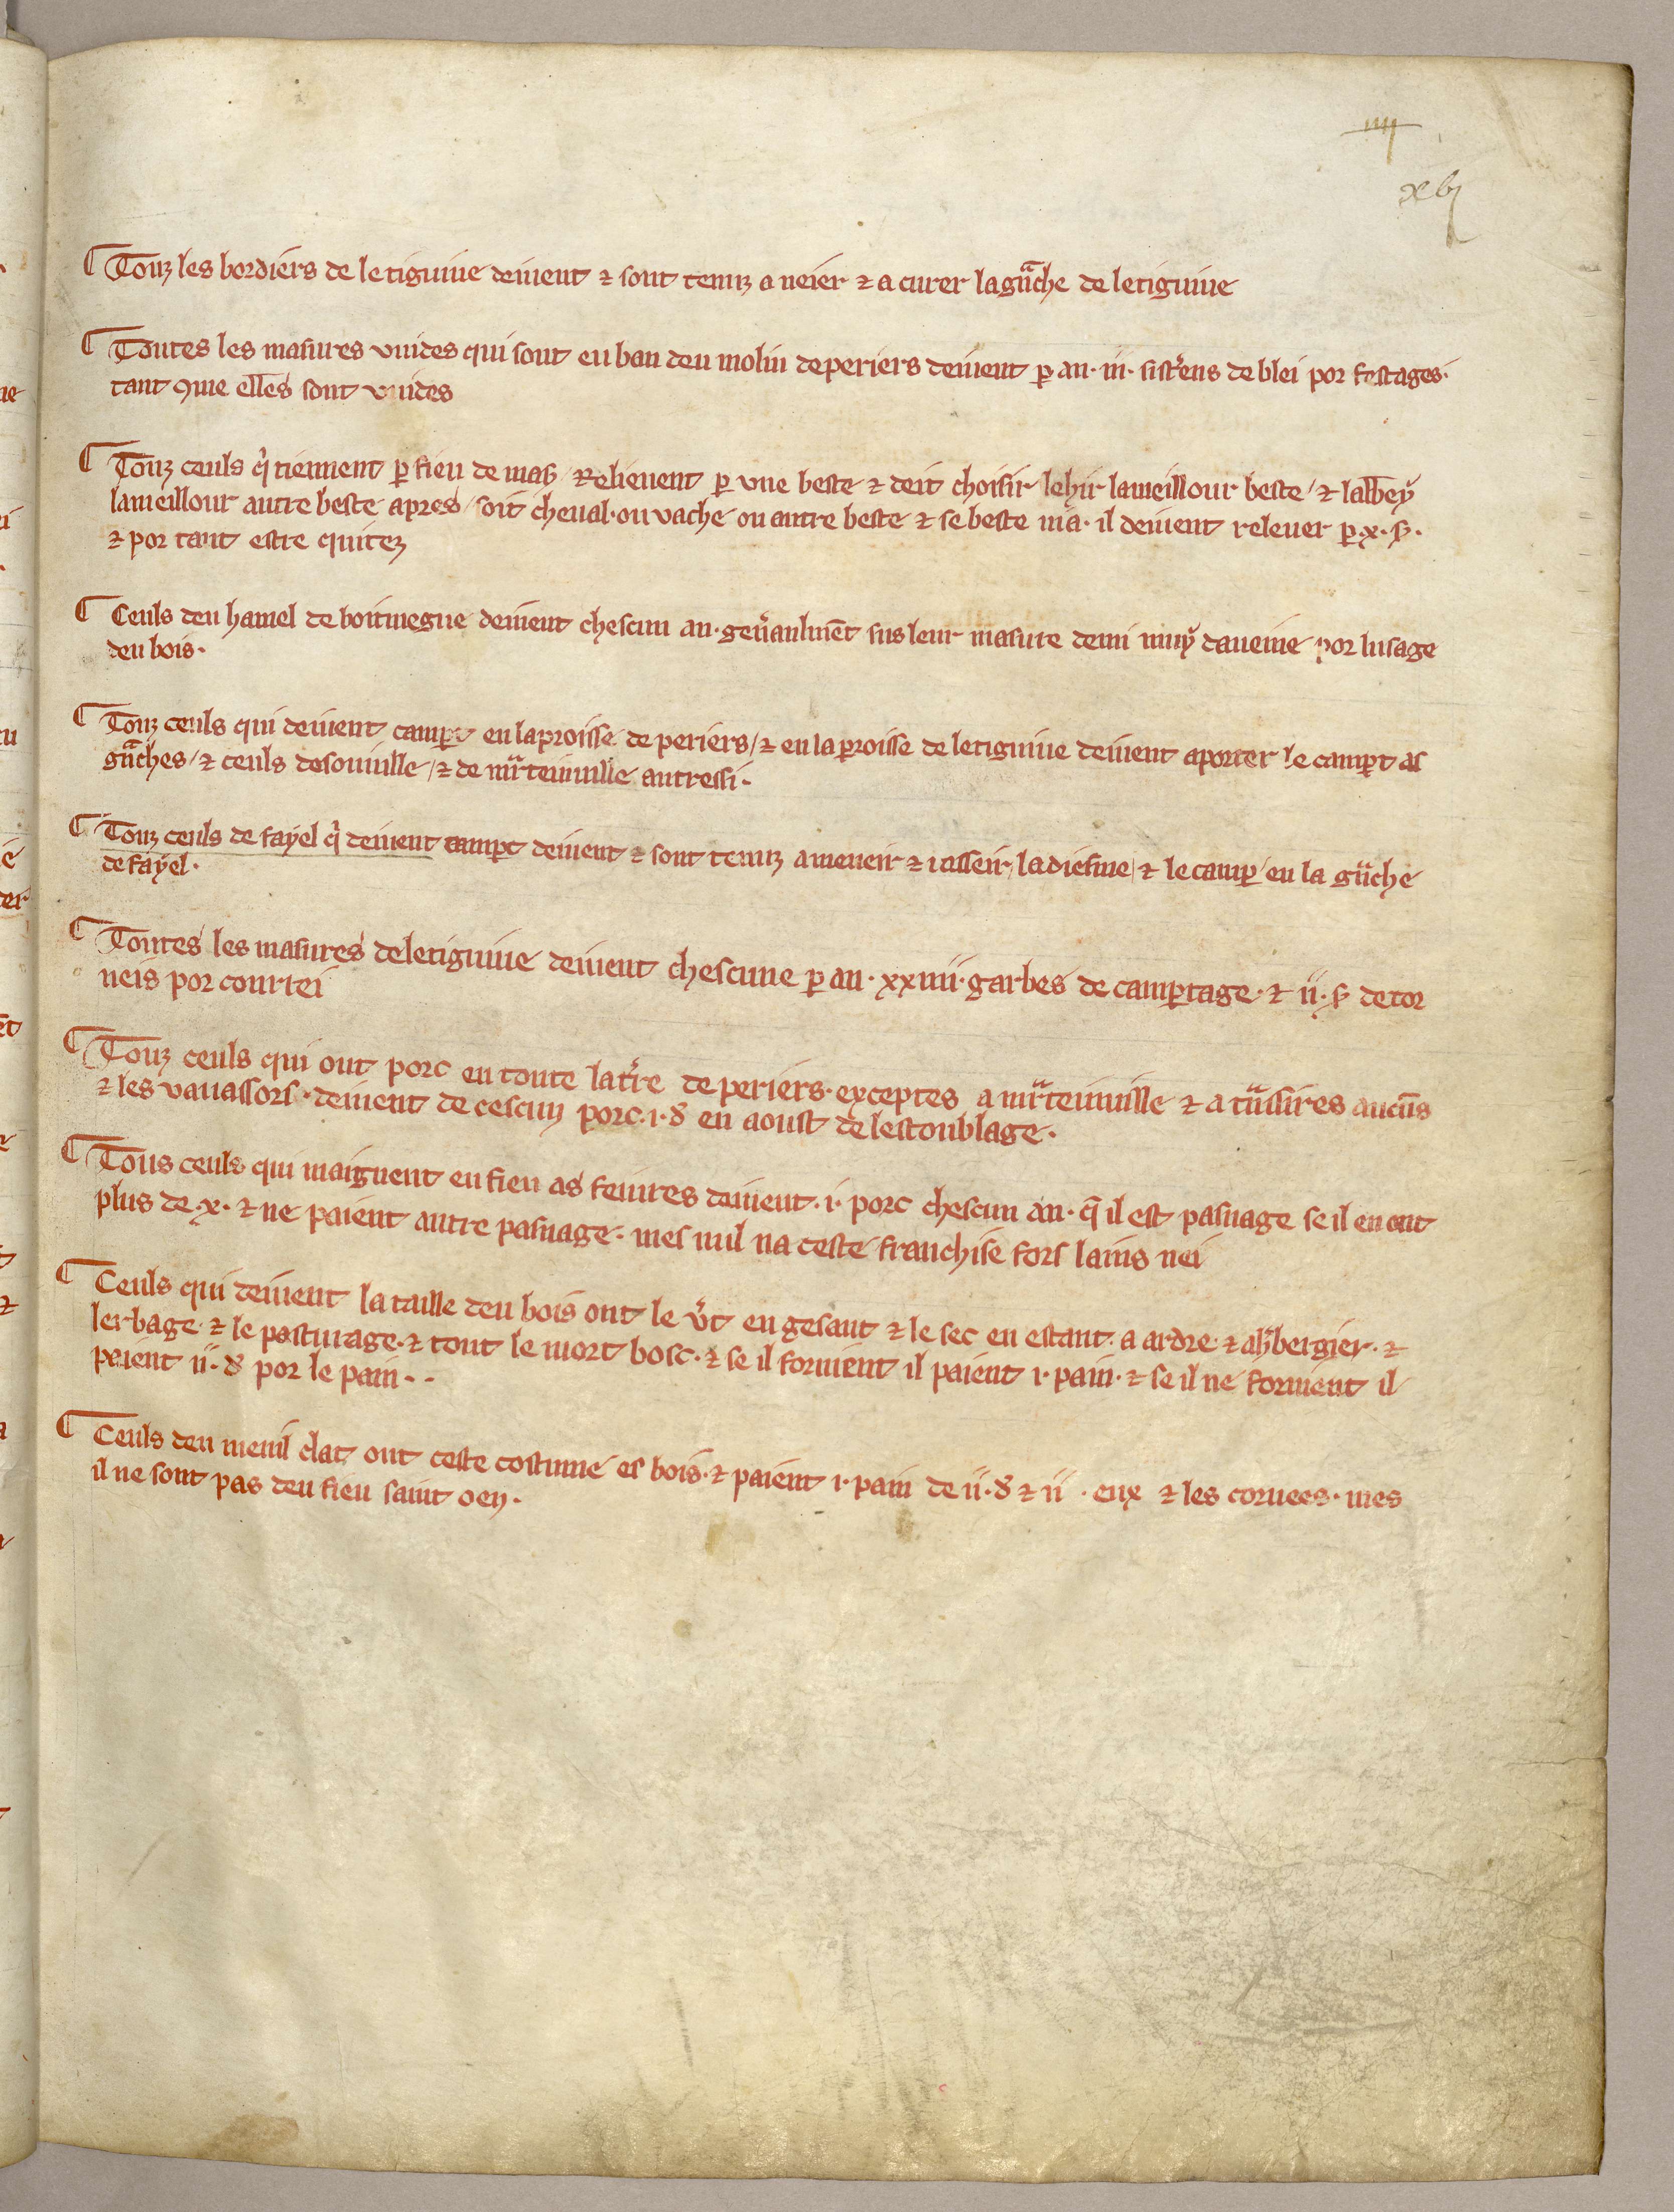 iiij
xlvj
¶ Touz les bordiers de letiguiue deiuent ⁊ sont tenuz a neier ⁊ a curer la gͣnche de letiguiue
¶ Toutes les masures vuides qui sont eu ban deu molin de periers deiuent ꝑ an · iii · sistͥens de blei por festages ·
tant que elles sont vuides
¶ Touz ceuls qͥ tiennent ꝑ fieu de mas / Relieuent ꝑ vne beste ⁊ deit choisir lehir lameillour beste / ⁊ labbey
lameillour autre beste apres / soit cheual · ou vache ou autre beste ⁊ se beste nia · il deiuent releuer ꝑ · x · ſ ·
⁊ por tant estre quitez
¶ Ceuls deu hamel de boitmegne deiuent chescun an · gen̾aulmēt sus leur masure demi muy daueine por lusage
deu bois ·
¶ Touz ceuls qui deiuent campꝑt en la paroisse de periers / ⁊ en la paroisse de letiguiue deiuent aporter le campꝑt as
gͣnches / ⁊ ceuls desouuille / ⁊ de mͣrteinuille autressi ·
¶ Touz ceuls de fayel qͥ deiuent campꝑt deiuent ⁊ sont tenuz a meneir ⁊ tasseir / la diesme / ⁊ le campꝑ / en la gͣnche
de fayel ·
¶ Toutes les masures de letiguiue deiuent chescune ꝑ an · xxiiii · garbes de campꝑtage · ⁊ ii · ſ de tor
neis por courtei
¶ Touz ceuls qui ont porc en toute la tr̾re de periers · exceptes a mͣrteinuille ⁊ a tͣussires aucūs
⁊ les vauassors · deiuent de cescun porc · i · d en aoust de lestoublage ·
¶ Tous ceuls qui maignent en fieu as feiures deiuent · i · porc chescun an · q̄ il est pasnage se il en ont
plus de · x · ⁊ ne paient autre pasnage · mes nul na ceste franchise fors lains nei
¶ Ceuls qui deiuent la taille deu bois ont le v̾t en gesant ⁊ le sec en estant · a ardre · ⁊ a h̾bergier · ⁊
lerbage · ⁊ le pasturage · ⁊ tout le mort bosc · ⁊ se il fornient il paient i · pain · ⁊ se il ne fornent il
paient ii · d por le pain · ·
¶ Ceuls deu menil dat ont ceste costume es bois · ⁊ paient i · pain de ii · d ⁊ ii · eux ⁊ les coruees · mes
il ne sont pas deu fieu saint oen ·